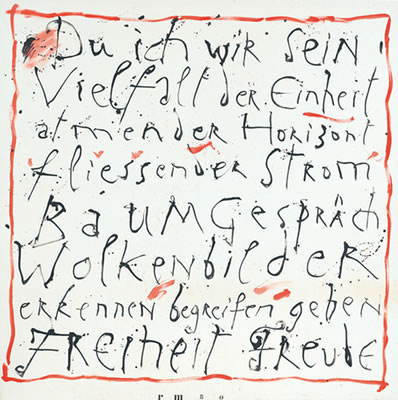 Du ich wir sein
Vielfalt der Einheit
atmender Horizont
fliessender Strom
BAUMGespräch
WolkenbildeR
erkennen begreifen gehen
FReiheit FReude